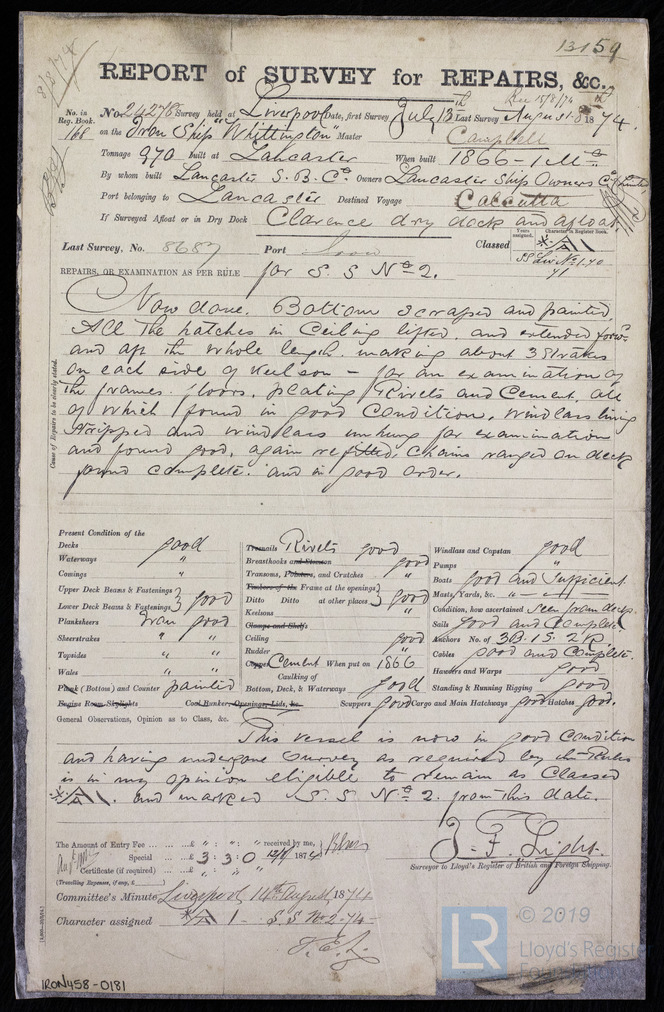 13159
8/8/74
REPORT of SURVEY for REPAIRS, &c.
Rec 15/8/74
No. in Reg. Book. 168
No 24278 Survey held at Liverpool Date, first Survey July 13th Last Survey August 8th 1874.
on the Iron Ship "Whittington" Master Campbell
Tonnage 970 built at Lancaster When built 1866 - 1 Mo
By whom built Lancaster S. B. Co. Owners Lancaster Ship Owners Co. Limited
Port belonging to Lancaster Destined Voyage Calcutta
If Surveyed Afloat or in Dry Dock Clarence dry dock and afloat
Years assigned. Character in Register Book.
Last Survey, No. 8687 Port Classed A 1
SS Liv No 1.70
71
REPAIRS, OR EXAMINATION AS PER RULE for S. S No 2.
Cause of Repairs to be clearly stated.
Now done. Bottom scraped and painted,
All the hatches in Ceiling lifted, and extended forwd.
and aft the whole length, making about 3 Strakes
on each side of Keelson - for an examination of
the frames. floors, plating Rivets and Cement, all
of which found in good Condition, windlass lining
stripped and windlass unhung for examination
and found good, again refitted, Chains ranged on deck
found complete. and in good order.
Present Condition of the
Decks good
Waterways "
Comings "
Upper Deck Beams & Fastenings } good
Lower Deck Beams & Fastenings }
Planksheers Iron good
Sheerstrakes " "
Topsides " "
Wales " "
Plank (Bottom) and Counter painted
Engine Room Skylights Coal Bunker Openings, Lids, &c.
Treenails Rivets good
Breasthooks and Stemson good
Transoms, Pointers, and Crutches "
Timbers of the Frame at the openings } good
Ditto Ditto at other places }
Keelsons "
Clamps and Shelfs
Ceiling good
Rudder "
Copper Cement When put on 1866
Caulking of Bottom, Deck, & Waterways good
Scuppers good Cargo and Main Hatchways good Hatches good.
Windlass and Capstan good
Pumps "
Boats good and Sufficient
Masts, Yards, &c. " — " — "
Condition, how ascertained Seen from deck.
Sails good and Complete
Anchors No. of 3B. 1S. 2K.
Cables good and Complete.
Hawsers and Warps good
Standing & Running Rigging good
General Observations, Opinion as to Class, &c.
This vessel is now in good Condition
and having undergone Survey as required by the Rules
is in my opinion eligible to remain as Classed
A 1. and marked S. S No 2. from this date.
The Amount of Entry Fee ... £ " : " : " received by me,
Special ... £ 3 : 3 : 0 1874
Certificate (if required) ... £ " : " : "
(Travelling Expenses, if any, £ )
Z. F. Light.
Surveyor to Lloyd's Register of British and Foreign Shipping.
Committee's Minute Liverpool 14th August 1874
Character assigned A 1 - S. S No 2 - 74 -
T. E. L.
IRON458-0181
LR
© 2019
Lloyd's Register
Foundation